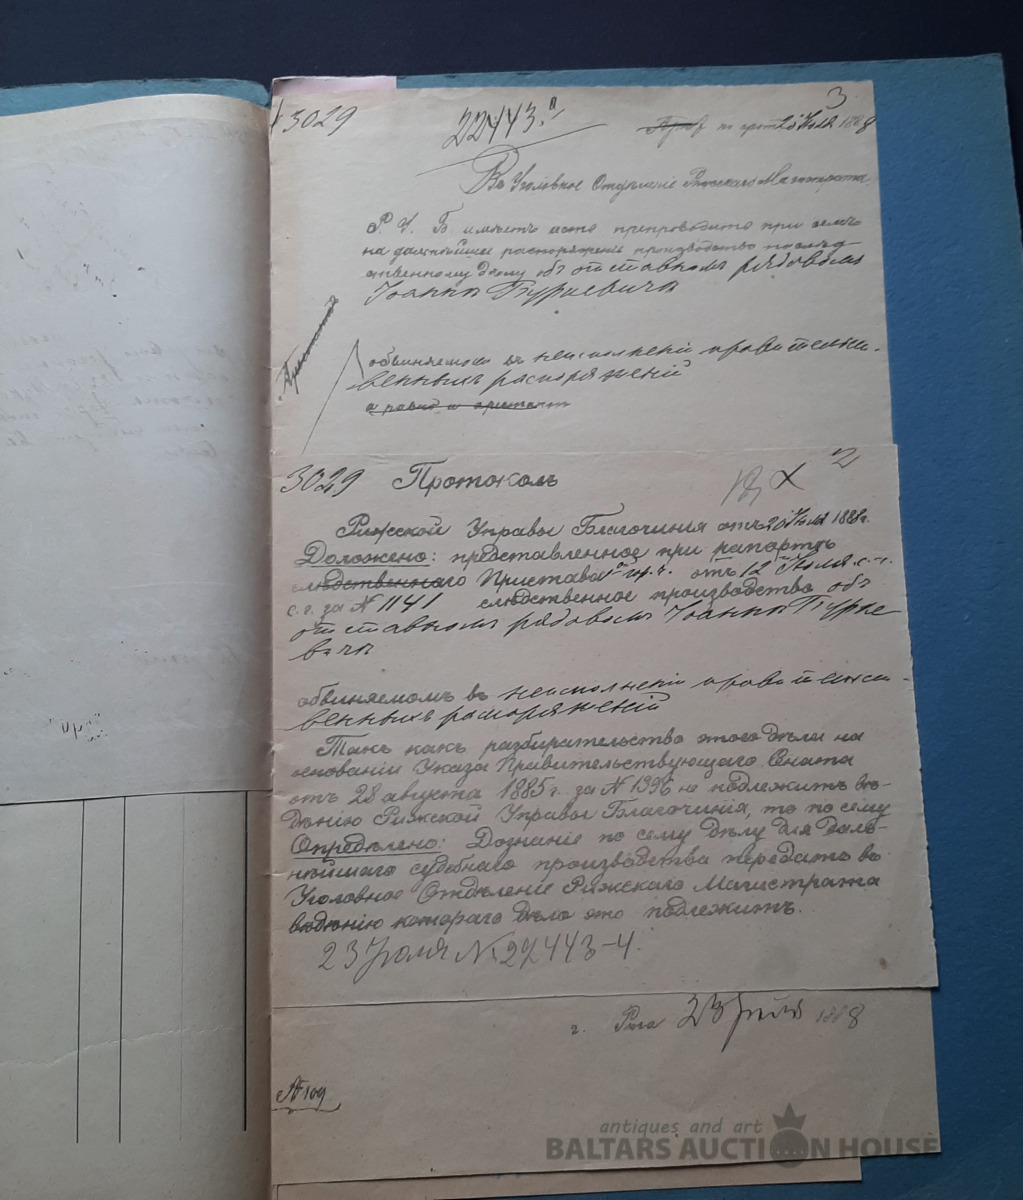 3029
22443.а
3
по прот. 20 Июля 1888
Въ Уголовное Отдѣленіе Рижскаго Магистрата
Р. У. Б. имѣетъ честь препроводить при семъ
на дальнѣйшее распоряженіе производство по слѣд-
ственному дѣлу объ отставномъ рядовомъ
Іоаннѣ Буркевичѣ
обвиняемомъ въ неисполненіи правительст-
венныхъ распоряженій
3029 Протоколъ
2
Рижской Управы Благочинія отъ 20 Июля 1888 г.
Доложено: представленное при рапортѣ
слѣдственнаго Пристава отъ 12 Июля с. г.
с. г. за № 1141 слѣдственное производство объ
отставномъ рядовомъ Іоаннѣ Бурке
вичѣ
обвиняемомъ въ неисполненіи правительст-
венныхъ распоряженій
Такъ какъ разбирательство этого дѣла на
основаніи Указа Правительствующаго Сената
отъ 28 августа 1885 г. за № 1396 не подлежитъ вѣ-
дѣнію Рижской Управы Благочинія, то по сему
Опредѣлено: Дознаніе по сему дѣлу для даль-
нѣйшаго судебнаго производства передать въ
Уголовное Отдѣленіе Рижскаго Магистрата
вѣдѣнію котораго дѣло это подлежитъ.
23 Июля № 22443-4.
г. Рига 23 Июля 1888
№ 109
antiques and art
BALTARS AUCTION HOUSE